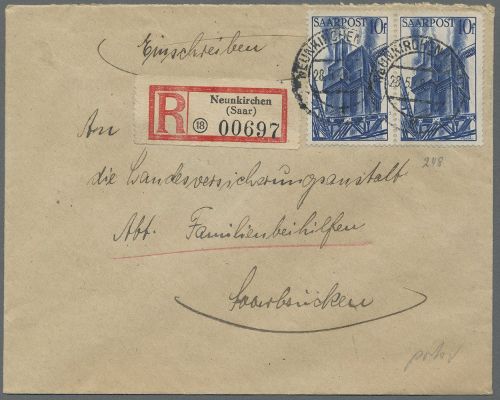 Einschreiben
SAARPOST 10F SAARPOST 10F
NEUNKIRCHEN NEUNKIRCHEN
28.5 28.5
R Neunkirchen
(Saar)
18 00697
An
die Landesversicherungsanstalt
248
Abt. Familienbeihilfen
Saarbrücken